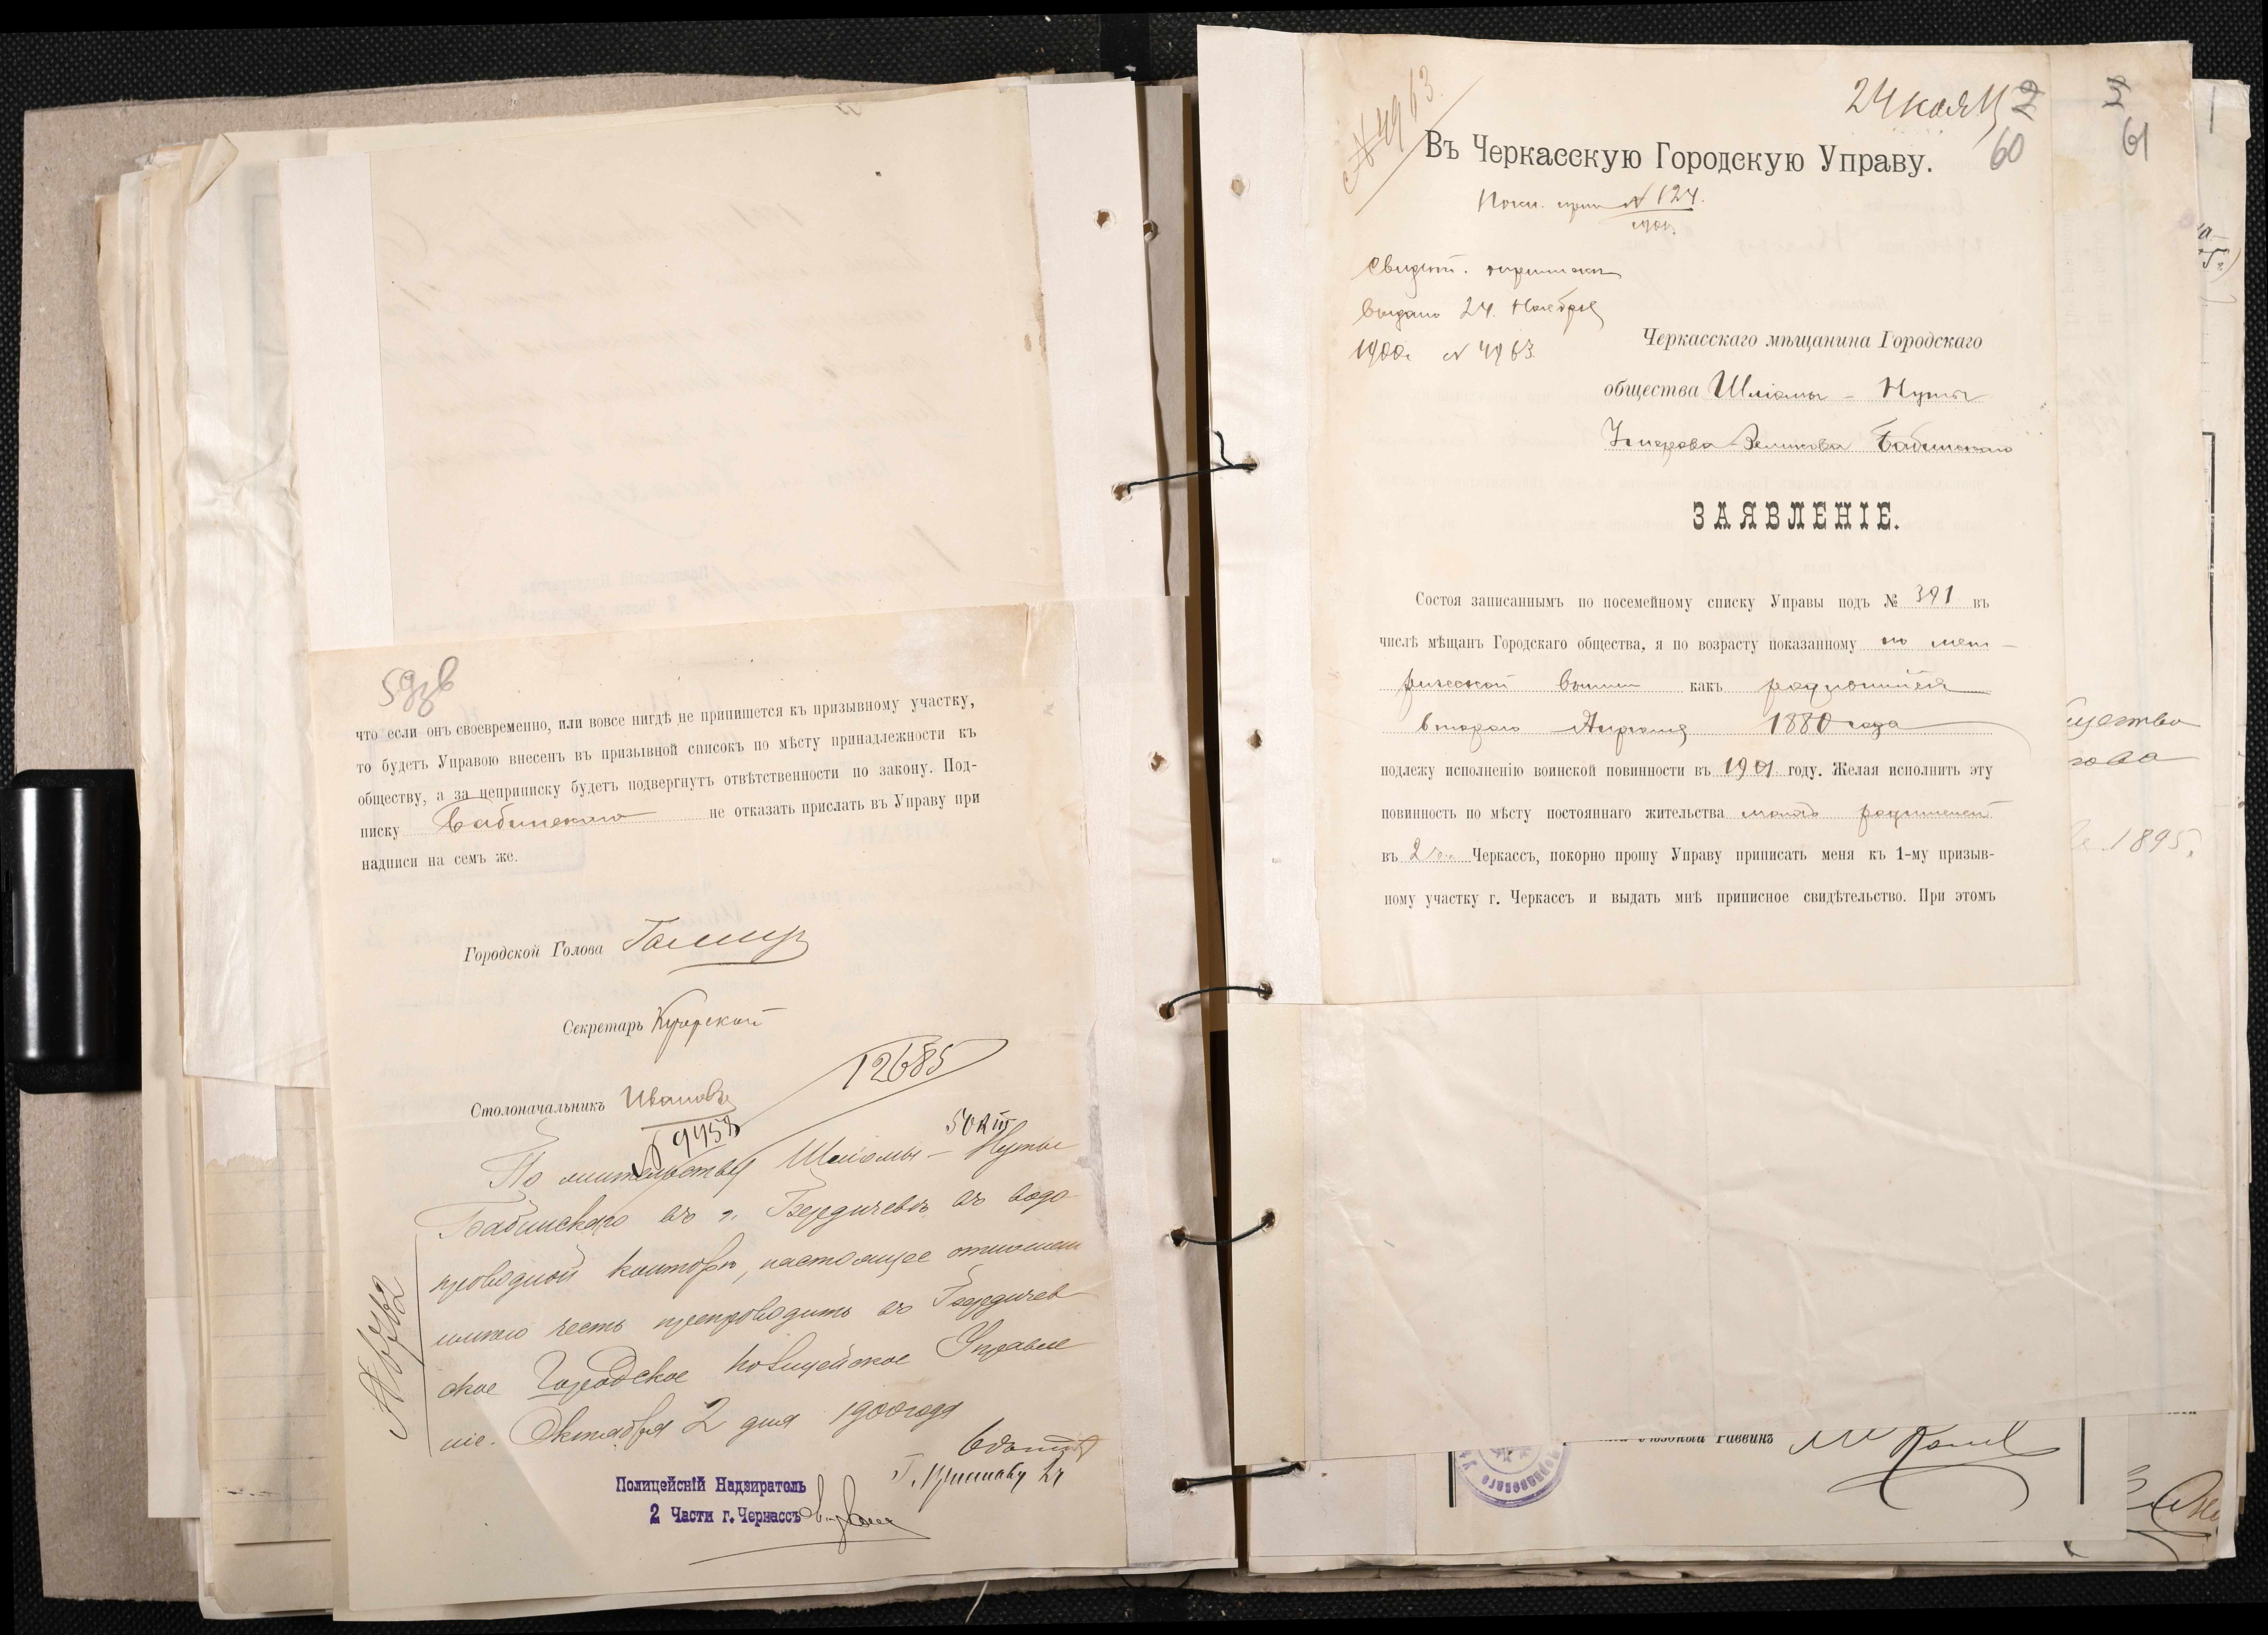 59зв
что если онъ своевременно, или вовсе нигдѣ не припишется къ призывному участку,
то будетъ Управою внесенъ въ призывной списокъ по мѣсту принадлежности къ
обществу, а за неприписку будетъ подвергнутъ отвѣтственности по закону. Под-
писку Бабинскаго не отказать прислать въ Управу при
надписи на семъ же.
Городской Голова
Секретарь
Столоначальникъ Ивановъ
12685
9458
По жительству Шліомы - Нуты
Бабинскаго въ г. Бердичевѣ въ водо
проводной конторѣ, настоящее отношеніе
имѣю честь препроводить въ Бердичев
ское Городское Полицейское Управле
ніе. Октября 2 дня 1900 года
Полицейскій Надзиратель
2 Части г. Черкассъ
24 нояб
60
61
№ 4963.
Въ Черкасскую Городскую Управу.
№ 124.
Свидѣт. приписки
выдано 24. Ноября
1900г. № 4963.
Черкасскаго мѣщанина Городскаго
общества Шліомы - Нуты
Бабинскаго
ЗАЯВЛЕНІЕ.
Состоя записаннымъ по посемейному списку Управы подъ № 391 въ
числѣ мѣщанъ Городскаго общества, я по возрасту показанному по мет-
рической выписи какъ родившійся
втораго Апрѣля 1880 года
подлежу исполненію воинской повинности въ 1901 году. Желая исполнить эту
повинность по мѣсту постояннаго жительства моихъ родителей
въ г. Черкассъ, покорно прошу Управу приписать меня къ 1-му призыв-
ному участку г. Черкассъ и выдать мнѣ приписное свидѣтельство. При этомъ
1895.
Раввинъ